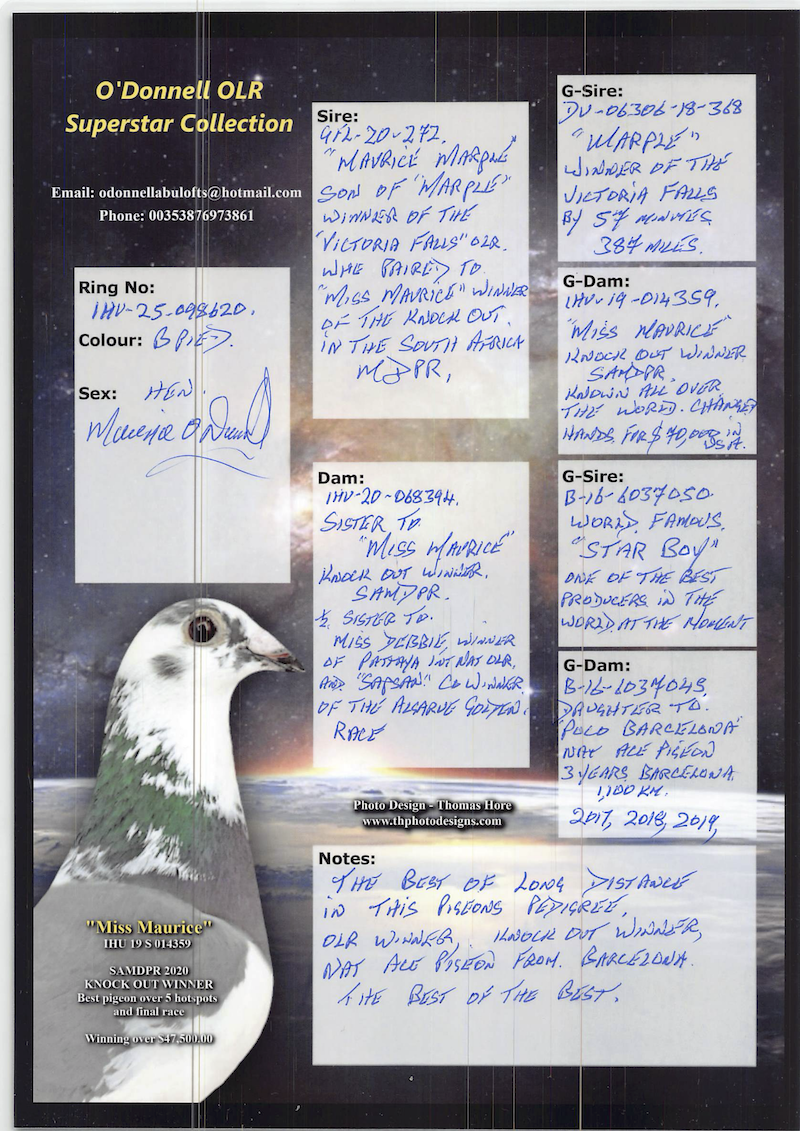 O'Donnell OLR
Superstar Collection
Email: odonnellabulofts@hotmail.com
Phone: 00353876973861
Ring No:
IHU-25-098620.
Colour: B PIED.
Sex: HEN.
Sire:
GFL-20-272.
"MAURICE MARPLE"
SON OF "MARPLE"
WINNER OF THE
"VICTORIA FALLS" OLR.
WHE PAIRED TO
"MISS MAURICE" WINNER
OF THE KNOCK OUT.
IN THE SOUTH AFRICA
MDPR,
Dam:
IHU-20-068394.
SISTER TO
"MISS MAURICE"
KNOCK OUT WINNER.
SAMDPR.
½ SISTER TO.
MISS DEBBIE, WINNER
OF PATTAYA INT NAT OLR.
AND "SAPSAN" CO WINNER
OF THE ALGARVE GOLDEN.
RACE
G-Sire:
DV-06306-18-368
"MARPLE"
WINNER OF THE
VICTORIA FALLS
BY 57 MINUTES
387 MILES.
G-Dam:
IHU-19-014359.
"MISS MAURICE"
KNOCK OUT WINNER
SAMDPR.
KNOWN ALL OVER
THE WORLD. CHANGED
HANDS FOR $70,000 IN
USA.
G-Sire:
B-16-6037050.
WORLD FAMOUS.
"STAR BOY"
ONE OF THE BEST
PRODUCERS IN THE
WORLD AT THE MOMENT
G-Dam:
B-16-6037045.
DAUGHTER TO.
"POCO BARCELONA"
NAT ACE PIGEON
3 YEARS BARCELONA
1,100 KM.
2017, 2018, 2019,
Photo Design - Thomas Hore
www.thphotodesigns.com
Notes:
THE BEST OF LONG DISTANCE
IN THIS PIGEONS PEDIGREE,
OLR WINNER, KNOCK OUT WINNER,
NAT ACE PIGEON FROM. BARCELONA.
THE BEST OF THE BEST.
"Miss Maurice"
IHU 19 S 014359
SAMDPR 2020
KNOCK OUT WINNER
Best pigeon over 5 hotspots
and final race
Winning over $47,500.00